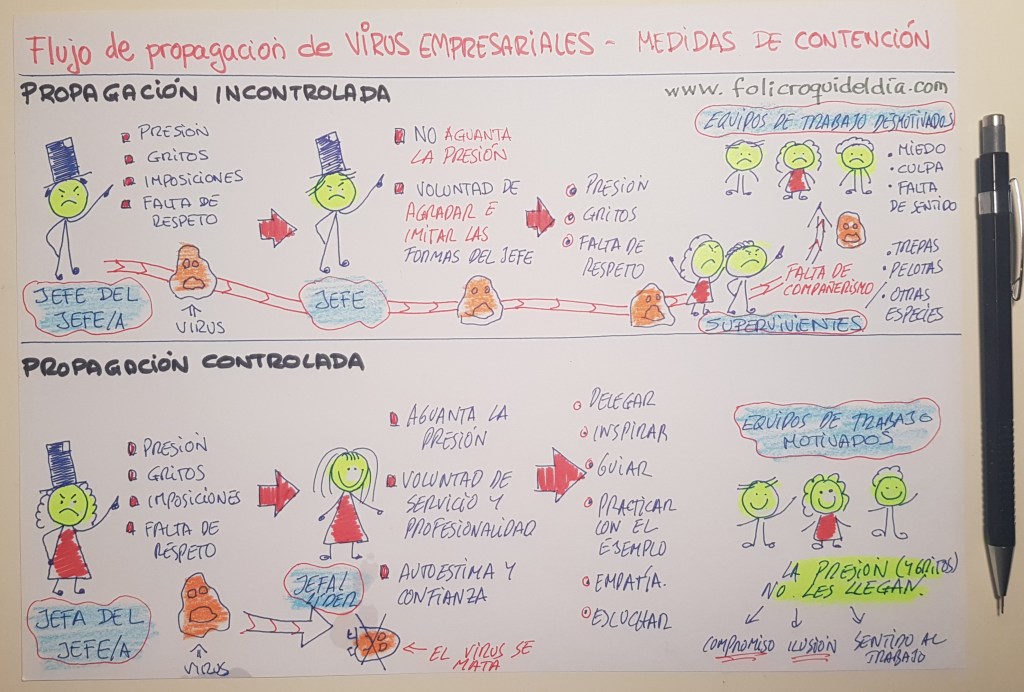 Flujo de propagación de VIRUS EMPRESARIALES - MEDIDAS DE CONTENCIÓN
PROPAGACIÓN INCONTROLADA
www.folicroquideldia.com
PRESIÓN
GRITOS
IMPOSICIONES
FALTA DE
RESPETO
JEFE DEL
JEFE/A
VIRUS
NO AGUANTA
LA PRESIÓN
VOLUNTAD DE
AGRADAR E
IMITAR LAS
FORMAS DEL JEFE
JEFE
PRESIÓN
GRITOS
FALTA DE
RESPETO
SUPERVIVIENTES
EQUIPOS DE TRABAJO DESMOTIVADOS
• MIEDO
• CULPA
• FALTA
DE SENTIDO
FALTA DE
COMPAÑERISMO
• TREPAS
• PELOTAS
• OTRAS
ESPECIES
PROPAGACIÓN CONTROLADA
PRESIÓN
GRITOS
IMPOSICIONES
FALTA DE
RESPETO
JEFA DEL
JEFE/A
VIRUS
AGUANTA LA
PRESIÓN
VOLUNTAD DE
SERVICIO Y
PROFESIONALIDAD
AUTOESTIMA Y
CONFIANZA
JEFA/
LÍDER
EL VIRUS SE
MATA
DELEGAR
INSPIRAR
GUIAR
PRACTICAR
CON EL
EJEMPLO
EMPATÍA.
ESCUCHAR
EQUIPOS DE TRABAJO
MOTIVADOS
LA PRESIÓN (Y GRITOS)
NO LES LLEGAN.
COMPROMISO
ILUSIÓN
SENTIDO AL
TRABAJO